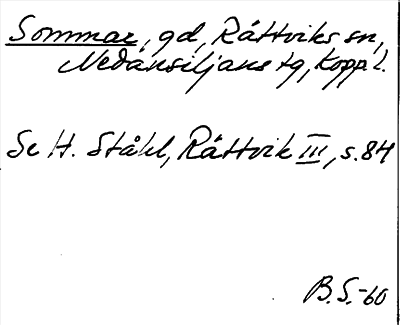 Sommar, gd, Rättviks sn,
Nedansiljans tg, Kopp. l.
Se H. Ståhl, Rättvik III, s. 84
B.S.-60